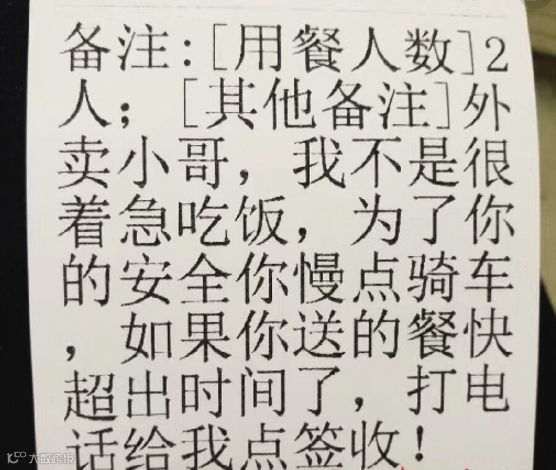 备注:[用餐人数]2
人；[其他备注]外
卖小哥，我不是很
着急吃饭，为了你
的安全你慢点骑车
，如果你送的餐快
超出时间了，打电
话给我点签收！
大数跨境